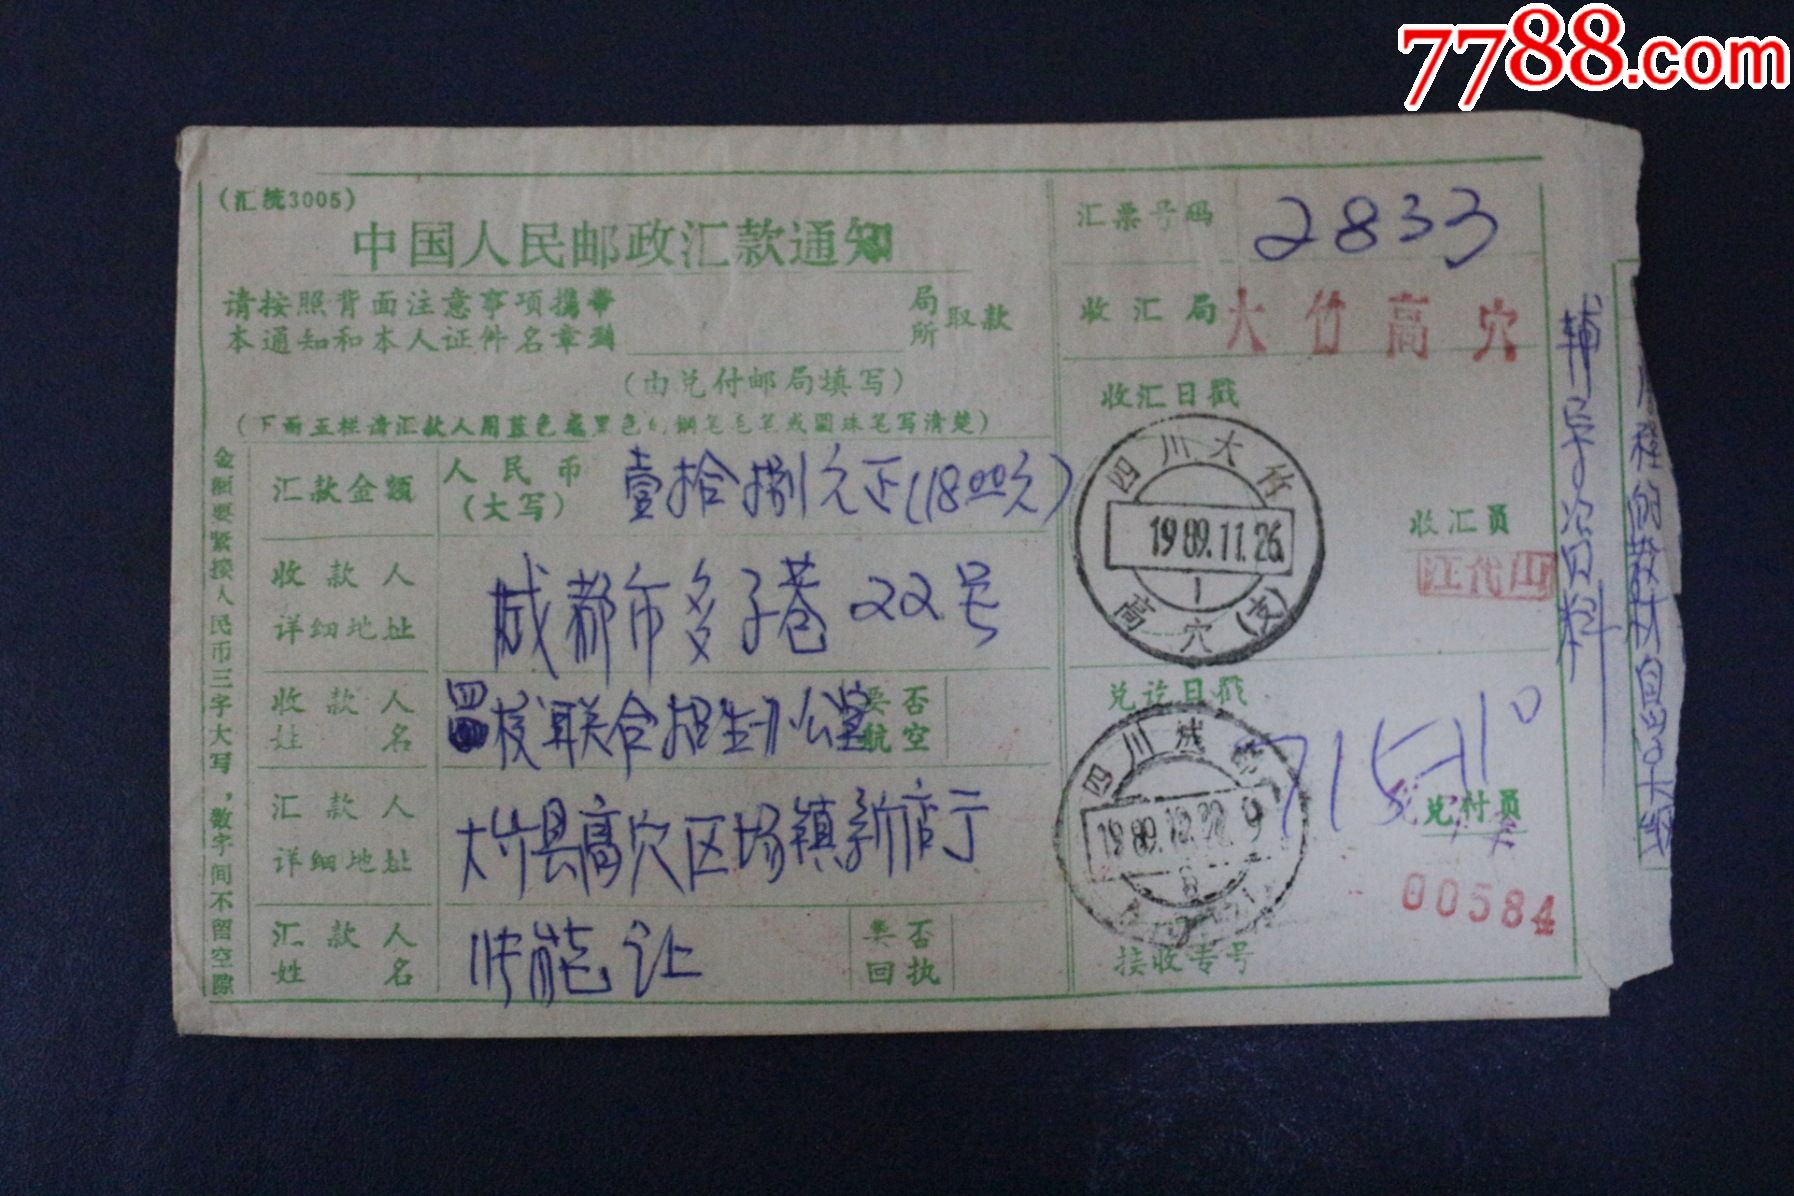 7788.com
(汇统3005)
中国人民邮政汇款通知
请按照背面注意事项携带
本通知和本人证件名章到
局
所
取款
(由兑付邮局填写)
(下面五栏请汇款人用蓝色或黑色的钢笔毛笔或圆珠笔写清楚)
金额要紧接人民币三字大写,数字间不留空隙
汇款金额
人民币
(大写)
壹拾捌元正(18.00元)
收款人
详细地址
成都市多子巷22号
收款人
姓名
四校联合招生办公室
要否
航空
汇款人
详细地址
大竹县高穴区场镇新店子
汇款人
姓名
要否
回执
汇票号码
2833
收汇局
大竹高穴
收汇日戳
四川大竹
1989.11.26.
1
高穴(支)
收汇员
江代山
兑讫日戳
四川成都
1989.12.
兑付员
00584
接收专号
辅导资料
的教材自学大纲